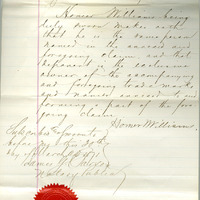 Homer Williams being
duly sworn makes oath
that he is the same person
named in the annexed and
foregoing claim, and that
deponent is the exclusive
owner of the accompanying
and foregoing trade marks
and names annexed to and
forming a part of the fore
going claim.
Homer Williams
Subscribed & sworn to
before me this 20th
day of March
James
Notary Public